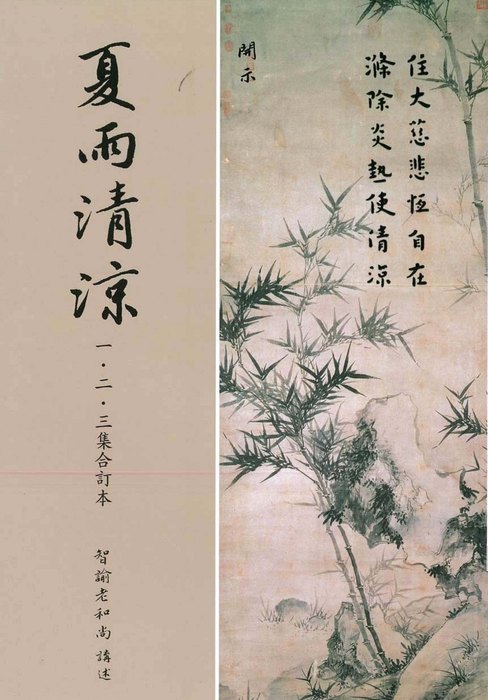 夏雨清涼
一・二・三集合訂本
智諭老和尚講述
開示
住大慈悲恆自在
滌除炎熱使清涼